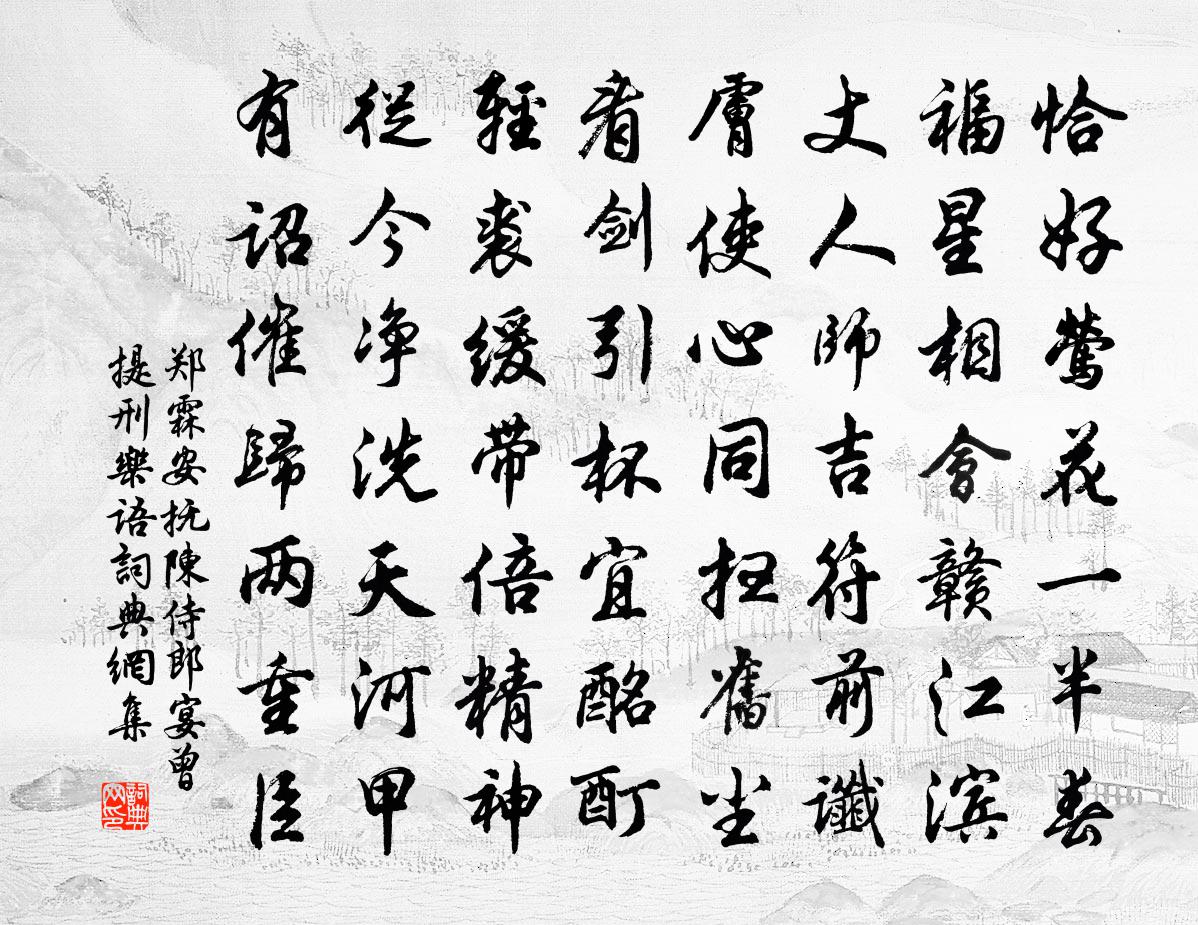 恰好鶯花一半春
福星相會赣江滨
丈人師吉符前讖
膚使心同扫舊尘
看剑引杯宜酩酊
輕裘缓带倍精神
從今净洗天河甲
有诏催歸两重臣
郑霖安抚陳侍郎宴曾
提刑樂语詞典網集